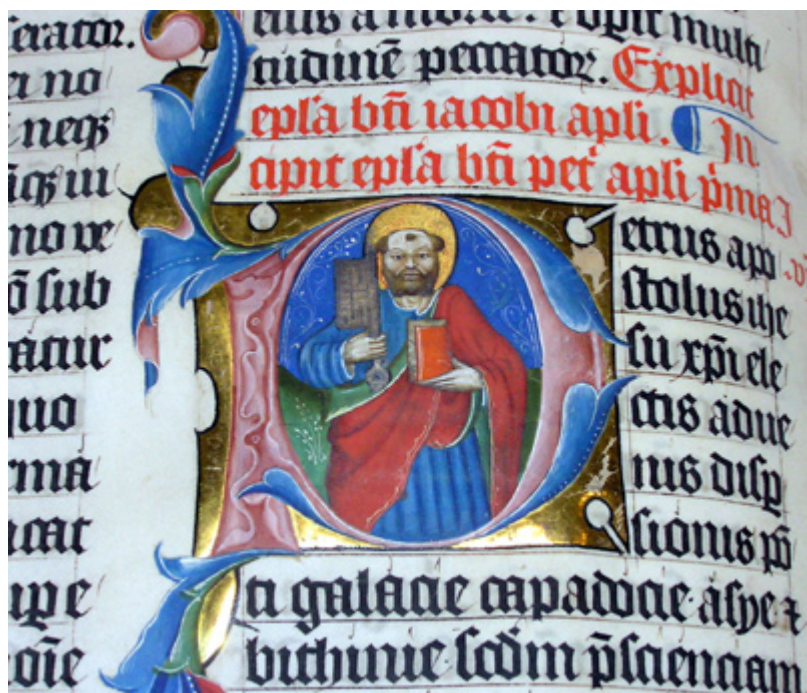 erator.
ei no
neqȝ
iqȝ in
no ve
ō sub
atur
uo
rma
ncat
upe
oīe
eius a morte. ⁊ opit multi
tudinē peccatoꝝ. Explicit
ep̄la bt̄i iacobi apl̄i. In
cipit ep̄la bt̄i pet᷑ apl̄i p̄ma I
P etrus apo
stolus ihe
su xp̄i ele
ctis adue
nis disꝑ
sionis pō
ti galacie capadocie asye ⁊
bithinie scd̄m p̄scienciam